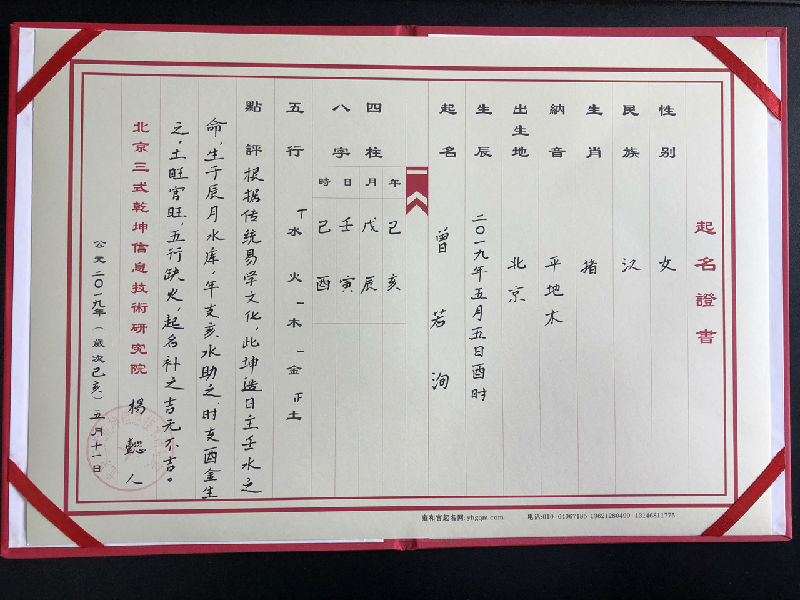 起名證書
性别 女
民族 汉
生肖 猪
納音 平地木
出生地 北京
生辰 二〇一九年五月五日酉时
起名 曾若洵
四柱 年 月 日 時
八字 己亥 戊辰 壬寅 己酉
五行 丁水 火 一木 一金 正土
點評 根据传统易学文化，此坤造日主壬水之
命，生于辰月水库，年支亥水助之，时支酉金生
之，土旺官旺，五行缺火，起名补之吉无不吉。
北京三式乾坤信息技術研究院 楊懿人
公元二〇一九年（歲次己亥）五月十一日
雍和宫起名网:yhgqm.com 电话:010-64967195 13621280490 13146811775